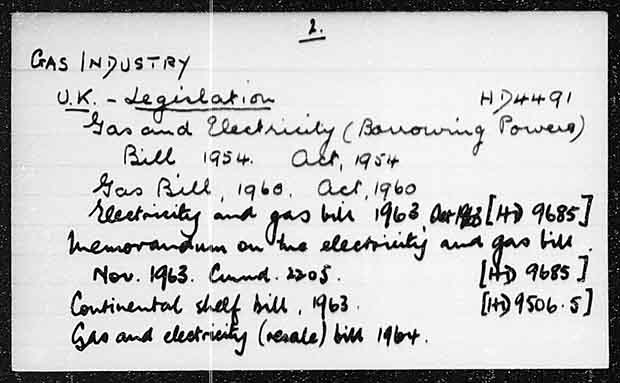 2.
GAS INDUSTRY
U.K. - Legislation HD4491
Gas and Electricity (Borrowing Powers)
Bill 1954. Act, 1954
Gas Bill, 1960. Act, 1960
Electricity and gas bill 1963 Act 1963 [HD 9685]
Memorandum on the electricity and gas bill.
Nov. 1963. Cmnd. 2205. [HD 9685]
Continental shelf bill, 1963. [HD9506.5]
Gas and electricity (resale) bill 1964.